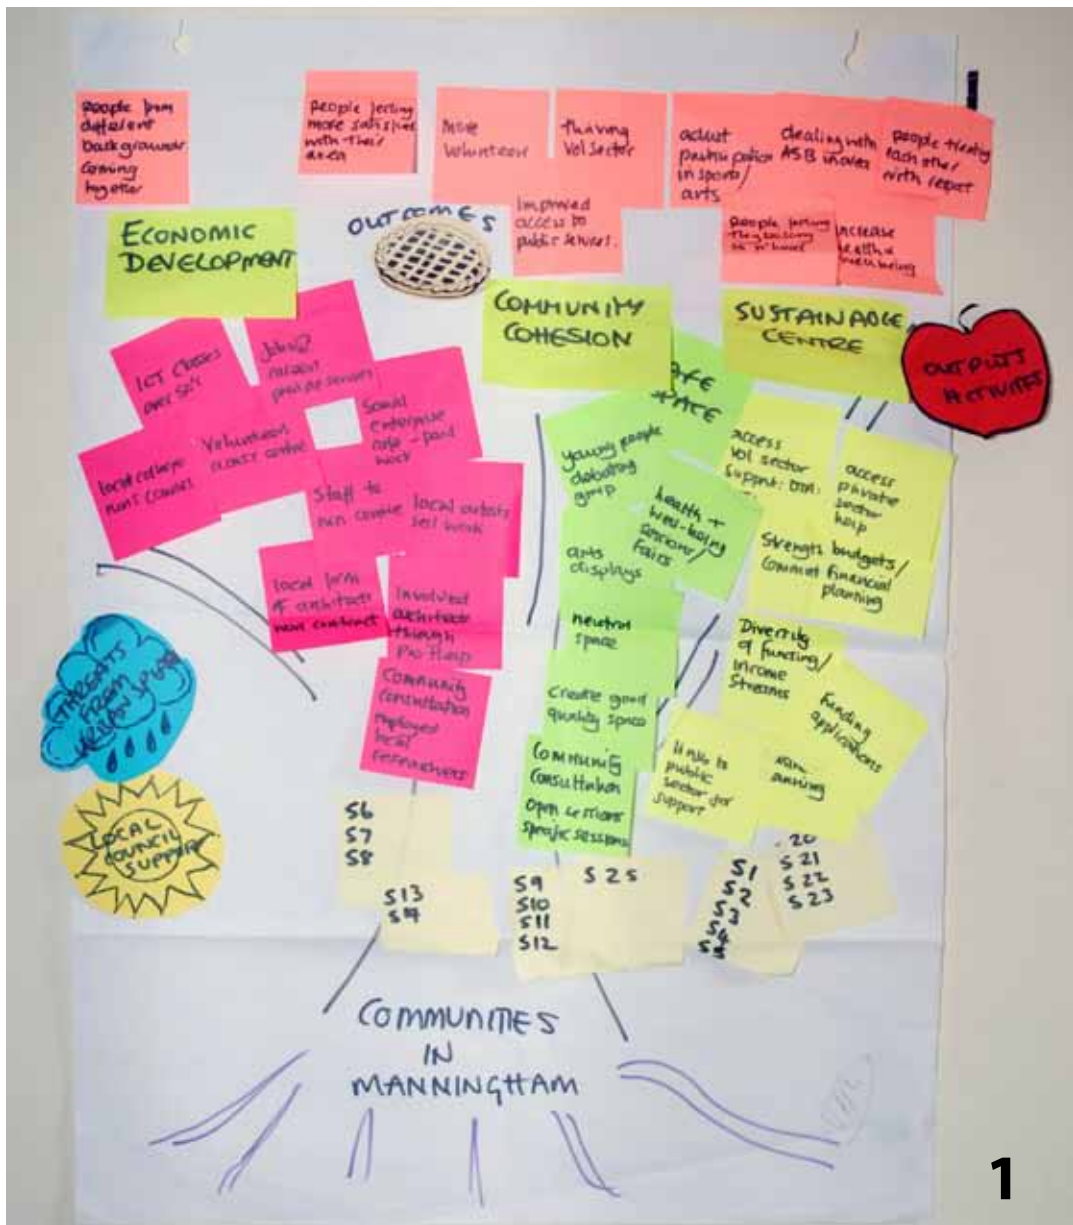 People from
different
backgrounds
coming
together
People feeling
more satisfied
with their
area
more
volunteers
thriving
Vol Sector
adult
participation
in sports/
arts
dealing with
ASB
people treating
each other
with respect
Improved
access to
public services.
People feeling
increase
health &
wellbeing
OUTCOMES
ECONOMIC
DEVELOPMENT
COMMUNITY
COHESION
SUSTAINABLE
CENTRE
OUTPUTS
ACTIVITIES
ICT Classes
over 50's
Jobs
provide services
Social
enterprise
cafe - paid
work
local college
runs courses
Volunteers
centre
Staff to
run centre
local artists
sell work
local firm
of architects
won contract
Involved
architects
through
Community
consultation
employed
local
researchers
SPACE
young people
debating
group
health +
well-being
sessions/
fairs
arts
displays
neutral
space
Create good
quality space
Community
Consultation
Open sessions
specific sessions
access
vol sector
support:
access
private
sector
help
budgets/
financial
planning
Diversity
of funding/
income
streams
Funding
applications
links to
public
sector for
support
THREATS
FROM
LOCAL
COUNCIL
SUPPORT
S6
S7
S8
S13
S14
S9
S10
S11
S12
S25
S1
S2
S3
S4
S5
20
S21
S22
S23
COMMUNITIES
IN
MANNINGHAM
1